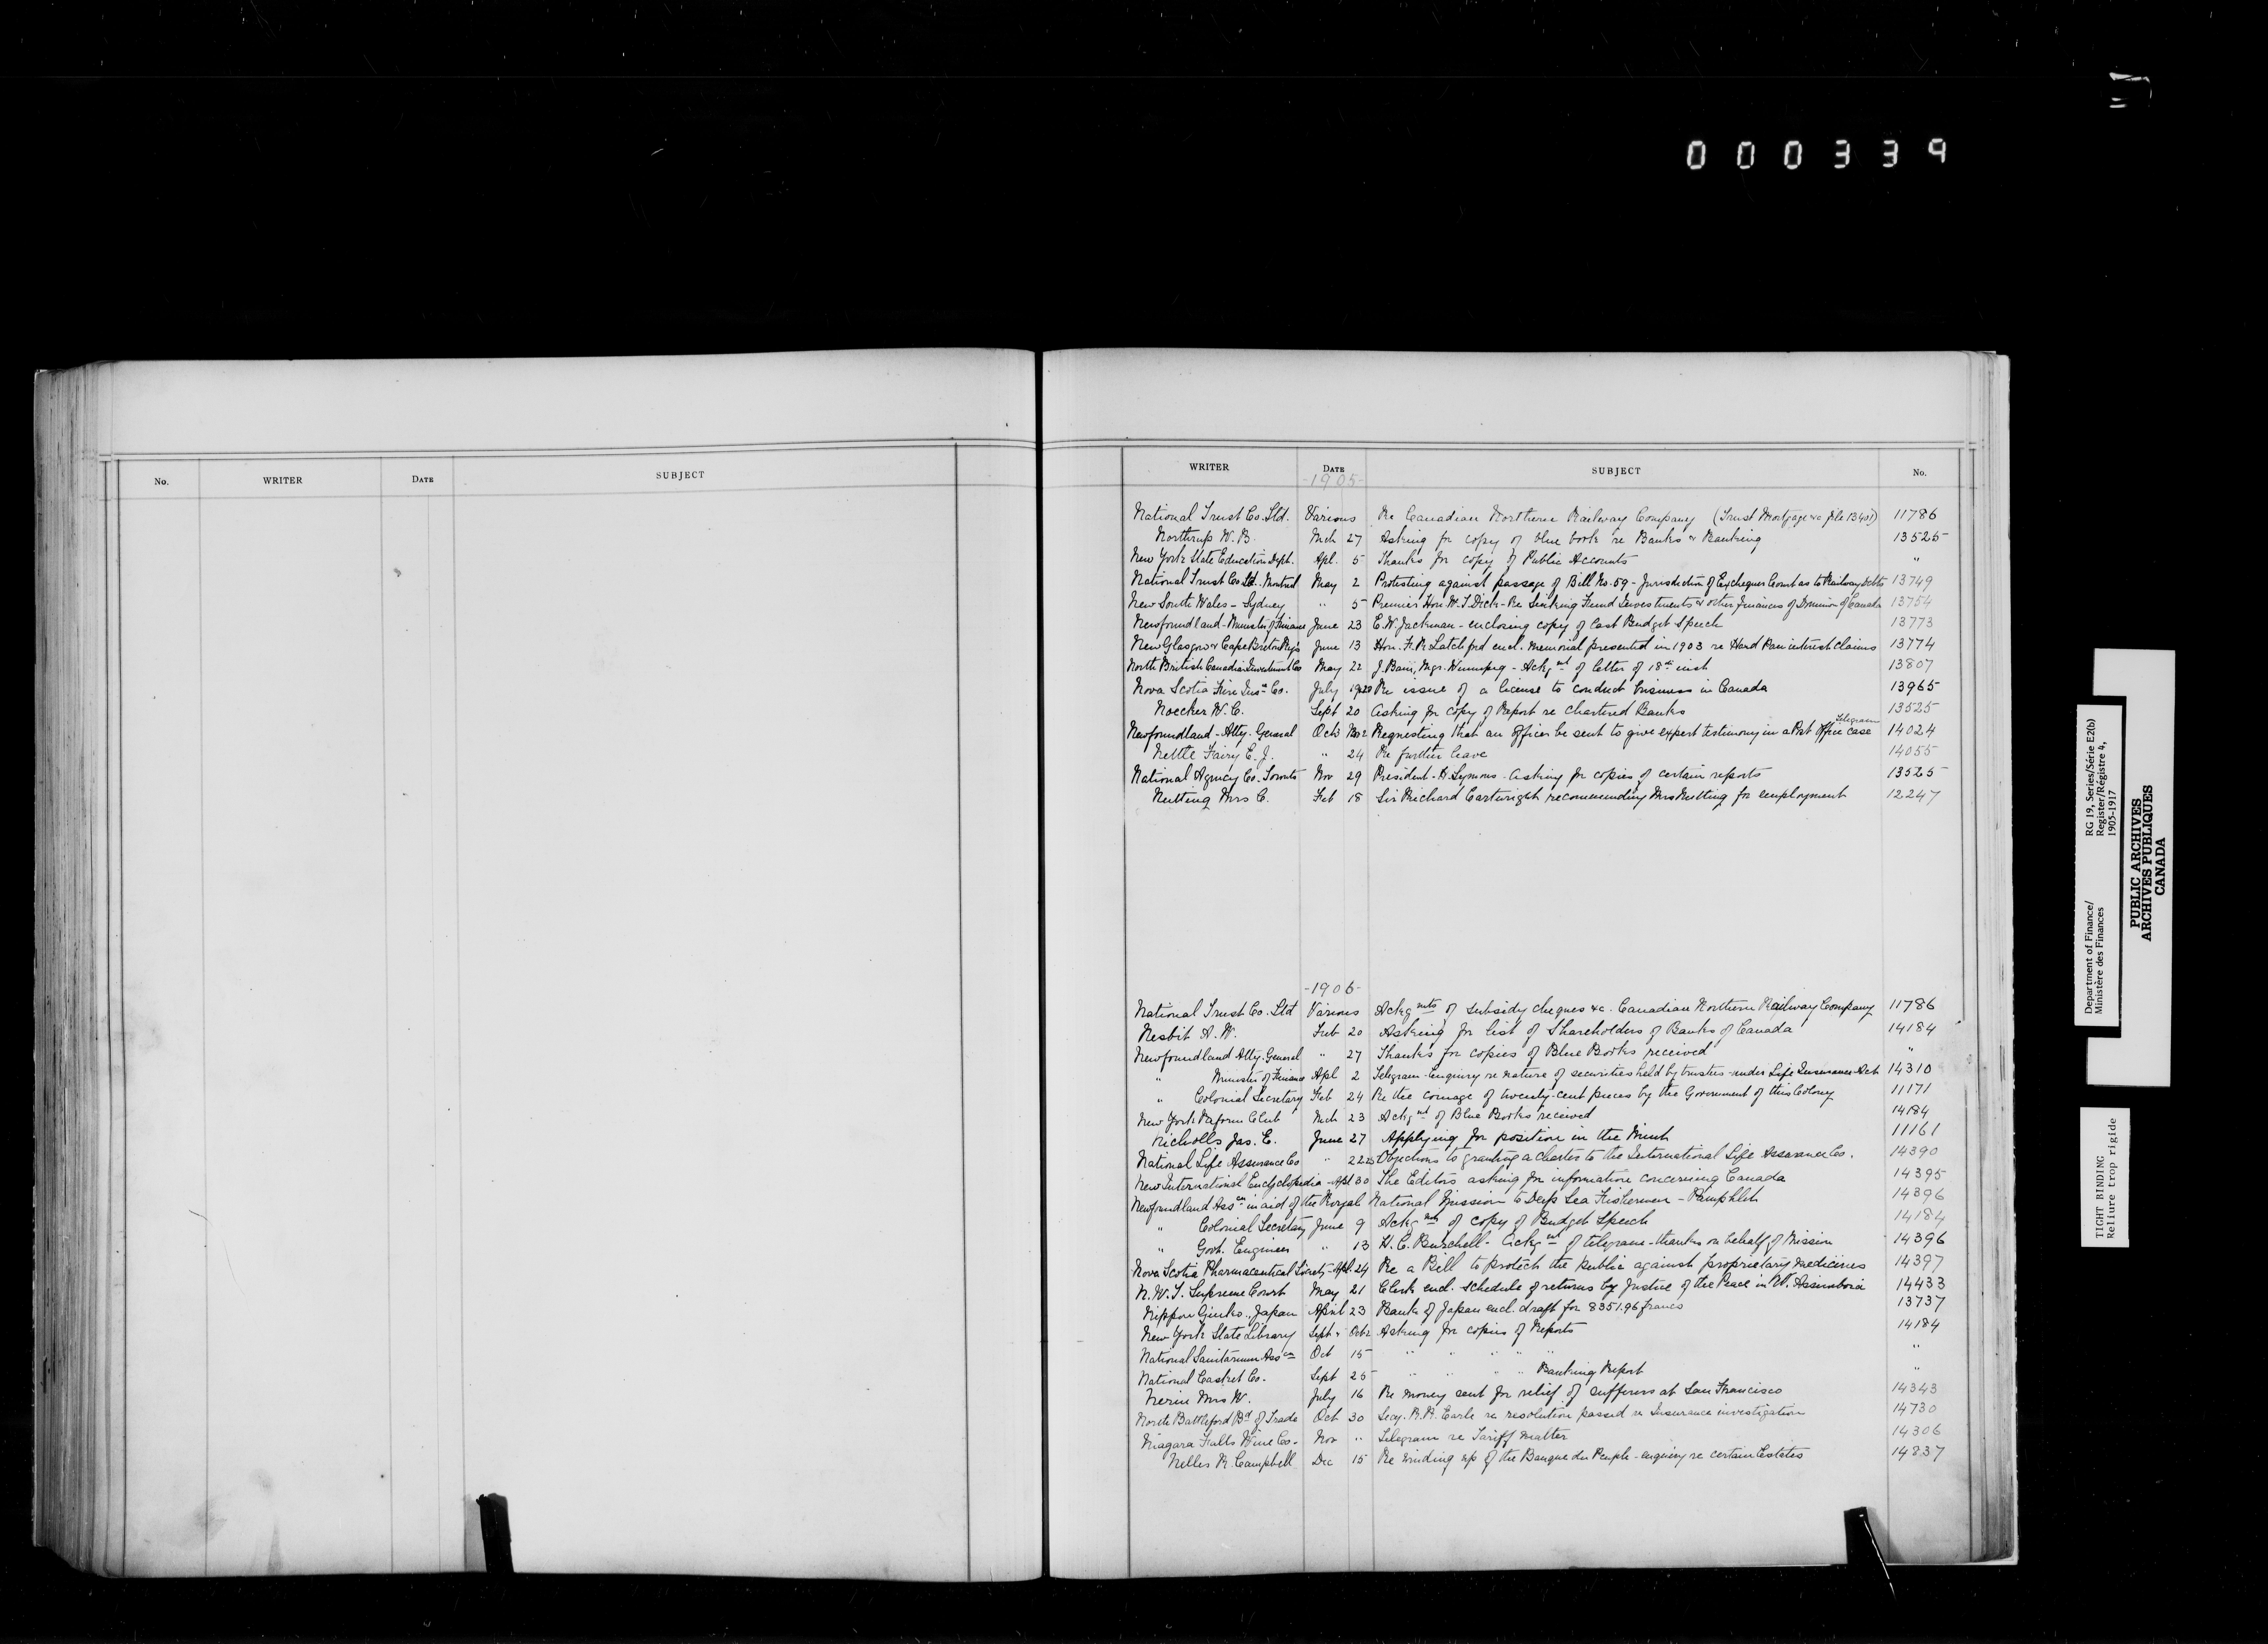 000339
No. WRITER DATE SUBJECT
WRITER DATE SUBJECT No.
-1905-
National Trust Co. Ltd. Various Re Canadian Northern Railway Company (Trust Mortgage &c file 13401) 11786
Northrup W. B. Mch 27 Asking for copy of blue book re Banks & Banking 13525
New York State Education Dept. Apl. 5 Thanks for copy of Public Accounts "
National Trust Co Ltd. Montreal May 2 Protesting against passage of Bill No. 59 - Jurisdiction of Exchequer Court as to Railway debts 13749
New South Wales - Sydney " 5 Premier Hon. W. T. Dick - Re Sinking Fund Investments & other finances of Dominion of Canada 13754
Newfoundland - Minister of Finance June 23 E. W. Jackman - enclosing copy of last Budget Speech 13773
New Glasgow & Cape Breton Ry's June 13 Hon. F. R. Latchford encl. memorial presented in 1903 re Hand Pan interest claims 13774
North British Canadian Investment Co May 22 J. Bain, Mgr. Winnipeg - Ackgmt of letter of 18th inst 13807
Nova Scotia Fire Insce Co. July 19 & 20 Re issue of a license to conduct business in Canada 13965
Noecker W. C. Sept 20 Asking for copy of Report re Chartered Banks 13525
Newfoundland - Atty. General Oct 3 Nov 2 Requesting that an officer be sent to give expert testimony in a Post Office case Telegram 14024
Nettle Fairy E. J. " 24 Re further leave 14055
National Agency Co. Toronto Nov 29 President - H. Symons - asking for copies of certain reports 13525
Nutting Mrs C. Feb 18 Sir Richard Cartwright recommending Mrs Nutting for employment 12247
-1906-
National Trust Co. Ltd Various Ackgmts of subsidy cheques &c. Canadian Northern Railway Company 11786
Nesbit A. W. Feb 20 Asking for list of Shareholders of Banks of Canada 14184
Newfoundland Atty. General " 27 Thanks for copies of Blue Books received "
" Minister of Finance Apl 2 Telegram - Enquiry re nature of securities held by trustees under Life Insurance Act 14310
" Colonial Secretary Feb 24 Re the coinage of twenty-cent pieces by the Government of this Colony 11171
New York Reform Club Mch 23 Ackgmt of Blue Books received 14184
Nicholls Jas. E. June 27 Applying for position in the Mint 11161
National Life Assurance Co " 22 25 Objections to granting a charter to the International Life Assurance Co. 14390
New International Encyclopedia - Apl 30 The Editors asking for information concerning Canada 14395
Newfoundland Assn in aid of the Royal National Mission to Deep Sea Fishermen - Pamphlet 14396
" Colonial Secretary June 9 Ackgmt of copy of Budget Speech 14184
" Govt. Engineer " 13 H. C. Burchell - Ackgmt of telegram - thanks on behalf of Mission 14396
Nova Scotia Pharmaceutical Society - Apl. 24 Re a Bill to protect the public against proprietary medicines 14397
N. W. T. Supreme Court May 21 Clerk encl. schedule of returns by Justice of the Peace in W. Assiniboia 14433
Nippon Ginko, Japan April 23 Bank of Japan encl. draft for 8351.96 francs 13737
New York State Library Sept & Oct 2 Asking for copies of Reports 14184
National Sanitarium Assn Oct 15 " " " " "
National Casket Co. Sept 25 " " " " Banking Report "
Nerin Mrs W. July 16 Re money sent for relief of sufferers at San Francisco 14343
North Battleford Bd of Trade Oct 30 Secy. R. R. Earle re resolution passed re Insurance investigation 14730
Niagara Falls Wine Co. Nov " Telegram re Tariff matter 14306
Nelles R. Campbell Dec 15 Re winding up of the Banque du Peuple - enquiry re certain Estates 14837
Department of Finance/ RG 19, Series/Série E2(b)
Ministère des Finances Register/Régistre 4,
1905-1917
PUBLIC ARCHIVES
ARCHIVES PUBLIQUES
CANADA
TIGHT BINDING
Reliure trop rigide